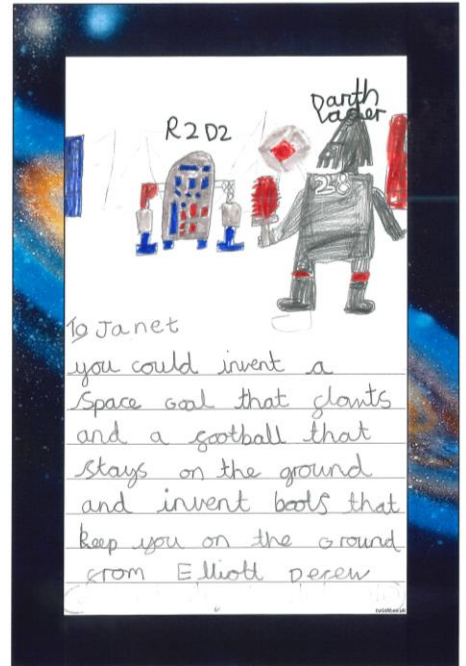 R2D2
Darth
Vader
28
To Janet
you could invent a
space Goal that glouts
and a football that
stays on the ground
and invent boots that
keep you on the Ground
from Elliott Derew